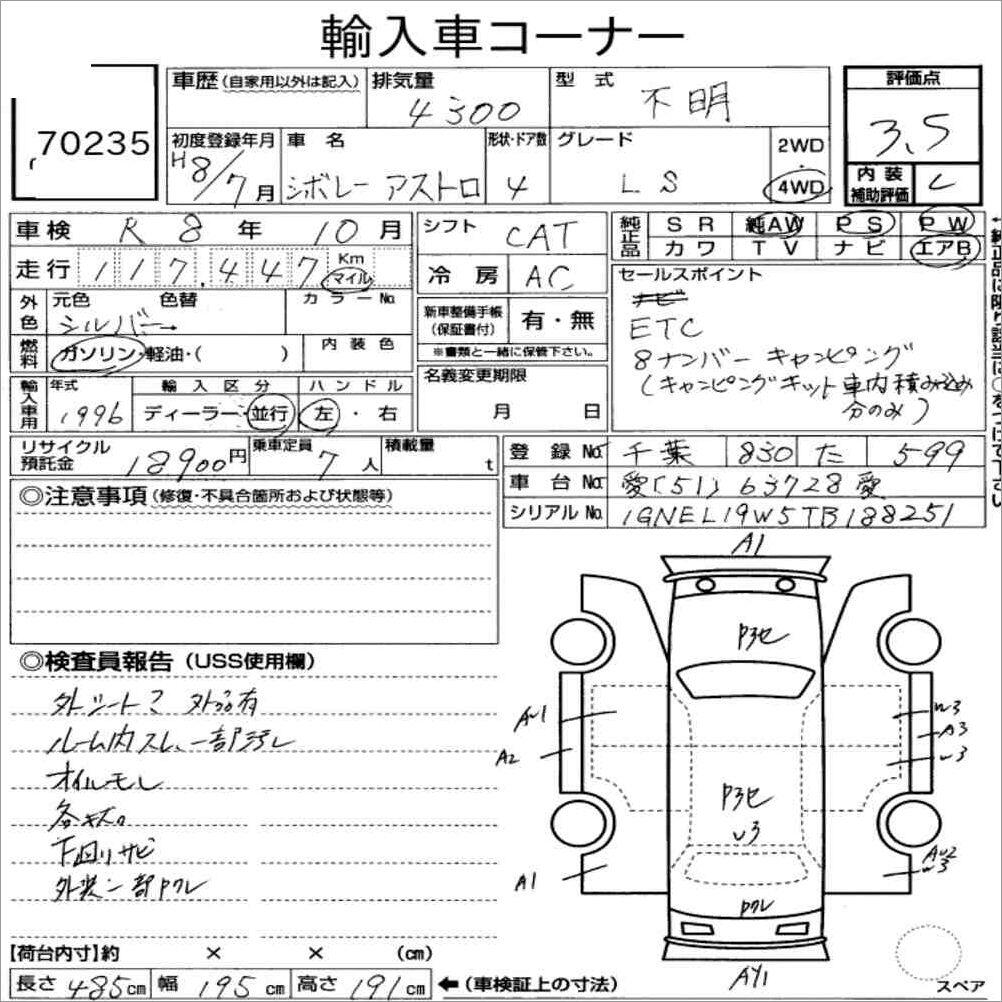 輸入車コーナー
70235
車歴(自家用以外は記入)
排気量
4300
型 式
不明
評価点
3.5
初度登録年月
H8/7月
車 名
シボレー アストロ
形状・ドア数
4
グレード
LS
2WD
・
4WD
内装
補助評価
C
車検 R 8 年 10 月
走行 117,447 Km
マイル
シフト CAT
冷房 AC
純正品
SR 純AW PS PW
カワ TV ナビ エアB
外色
元色 色替 カラーNo.
シルバー→
燃料
ガソリン・軽油・( )
内装色
新車整備手帳
(保証書付)
有・無
※書類と一緒に保管下さい。
セールスポイント
ナビ
ETC
8ナンバー キャンピング
(キャンピングキット車内積み込み
分のみ)
輸入車用
年式 輸入区分 ハンドル
1996 ディーラー・並行 左・右
名義変更期限
月 日
リサイクル
預託金
18900円
乗車定員
7人
積載量
t
登録No. 千葉 830 た 599
車台No. 愛[51]63728愛
シリアルNo. 1GNEL19W5TB188251
◎注意事項(修復・不具合箇所および状態等)
◎検査員報告(USS使用欄)
ルーム内スレ、一部汚レ
オイルモレ
下回りサビ
外装一部ワレ
A1
P3セ
AU1
A2
W3
A3
U3
P3セ
U3
A1
AU2
W3
ワレ
AY1
スペア
【荷台内寸】約 × × (cm)
長さ 485cm 幅 195cm 高さ 191cm ←(車検証上の寸法)